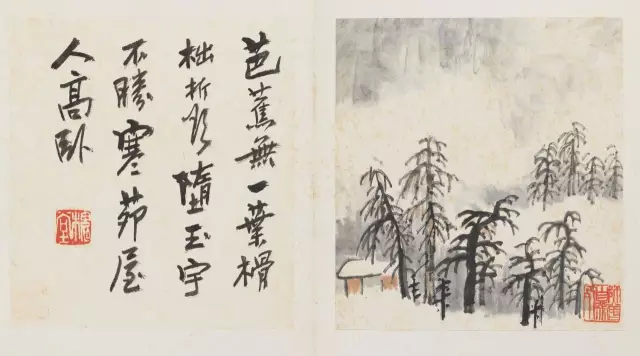 芭蕉無一葉榾
柮折欲墮玉宇
不勝寒茆屋
人高臥